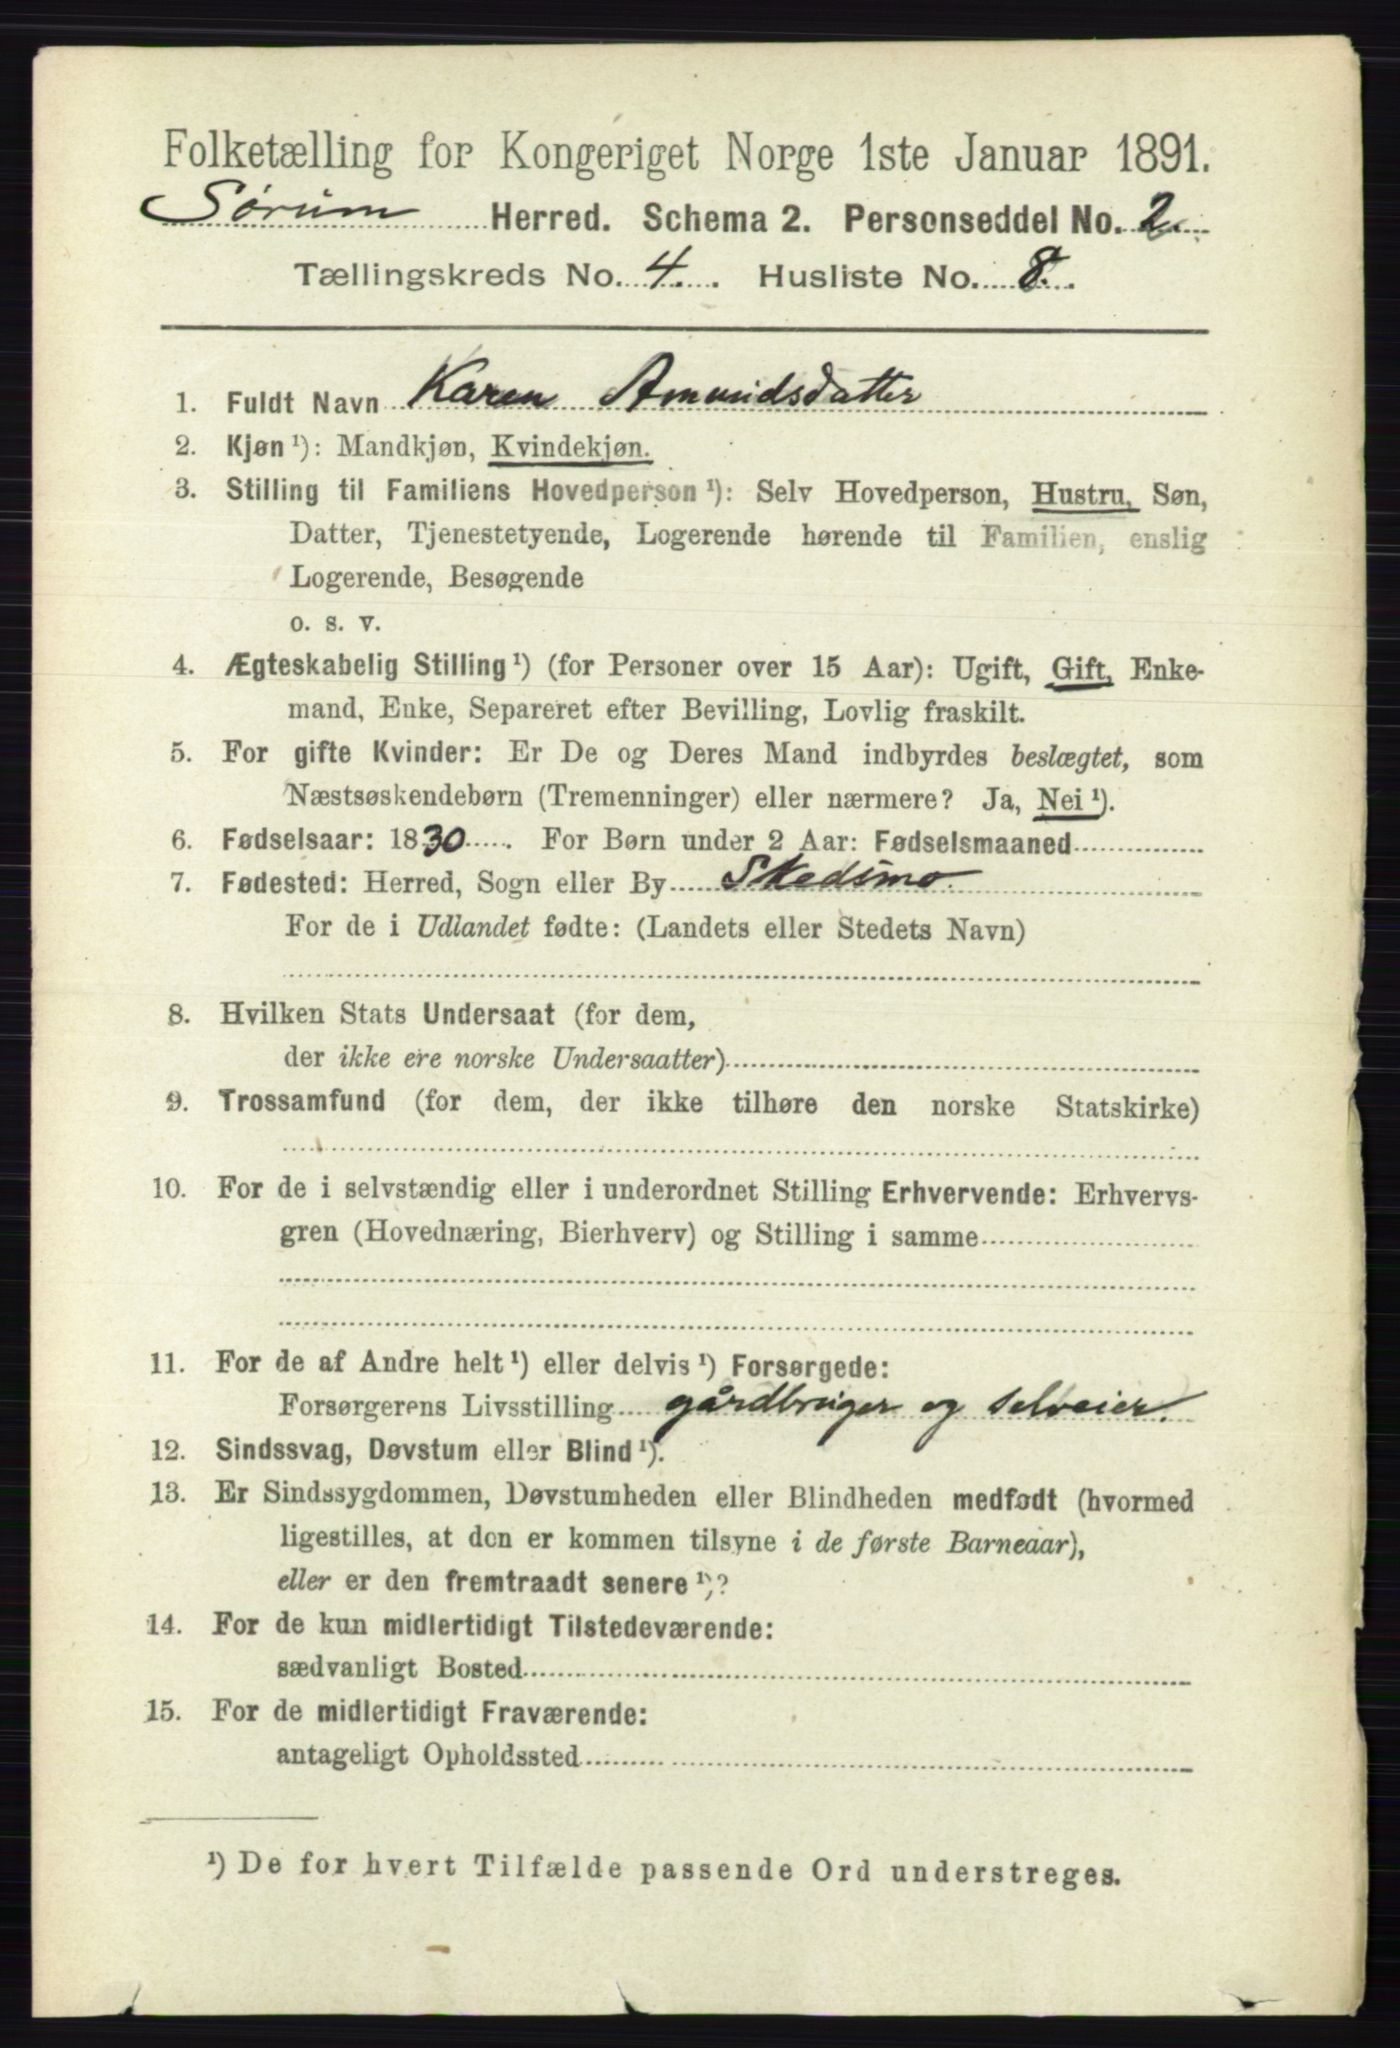 Folketælling for Kongeriget Norge 1ste Januar 1891.
Sørum Herred. Schema 2. Personseddel No. 2.
Tællingskreds No. 4. Husliste No. 8.
1. Fuldt Navn Karen Amundsdatter
2. Kjøn ¹): Mandkjøn, Kvindekjøn.
3. Stilling til Familiens Hovedperson ¹): Selv Hovedperson, Hustru, Søn,
Datter, Tjenestetyende, Logerende hørende til Familien, enslig
Logerende, Besøgende
o. s. v.
4. Ægteskabelig Stilling ¹) (for Personer over 15 Aar): Ugift, Gift, Enke-
mand, Enke, Separeret efter Bevilling, Lovlig fraskilt.
5. For gifte Kvinder: Er De og Deres Mand indbyrdes beslægtet, som
Næstsøskendebørn (Tremenninger) eller nærmere? Ja, Nei ¹).
6. Fødselsaar: 1830. For Børn under 2 Aar: Fødselsmaaned
7. Fødested: Herred, Sogn eller By Skedsmo.
For de i Udlandet fødte: (Landets eller Stedets Navn)
8. Hvilken Stats Undersaat (for dem,
der ikke ere norske Undersaatter)
9. Trossamfund (for dem, der ikke tilhøre den norske Statskirke)
10. For de i selvstændig eller i underordnet Stilling Erhvervende: Erhvervs-
gren (Hovednæring, Bierhverv) og Stilling i samme
11. For de af Andre helt ¹) eller delvis ¹) Forsørgede:
Forsørgerens Livsstilling gårdbruger og selveier.
12. Sindssvag, Døvstum eller Blind ¹).
13. Er Sindssygdommen, Døvstumheden eller Blindheden medfødt (hvormed
ligestilles, at den er kommen tilsyne i de første Barneaar),
eller er den fremtraadt senere ¹)?
14. For de kun midlertidigt Tilstedeværende:
sædvanligt Bosted
15. For de midlertidigt Fraværende:
antageligt Opholdssted
¹) De for hvert Tilfælde passende Ord understreges.